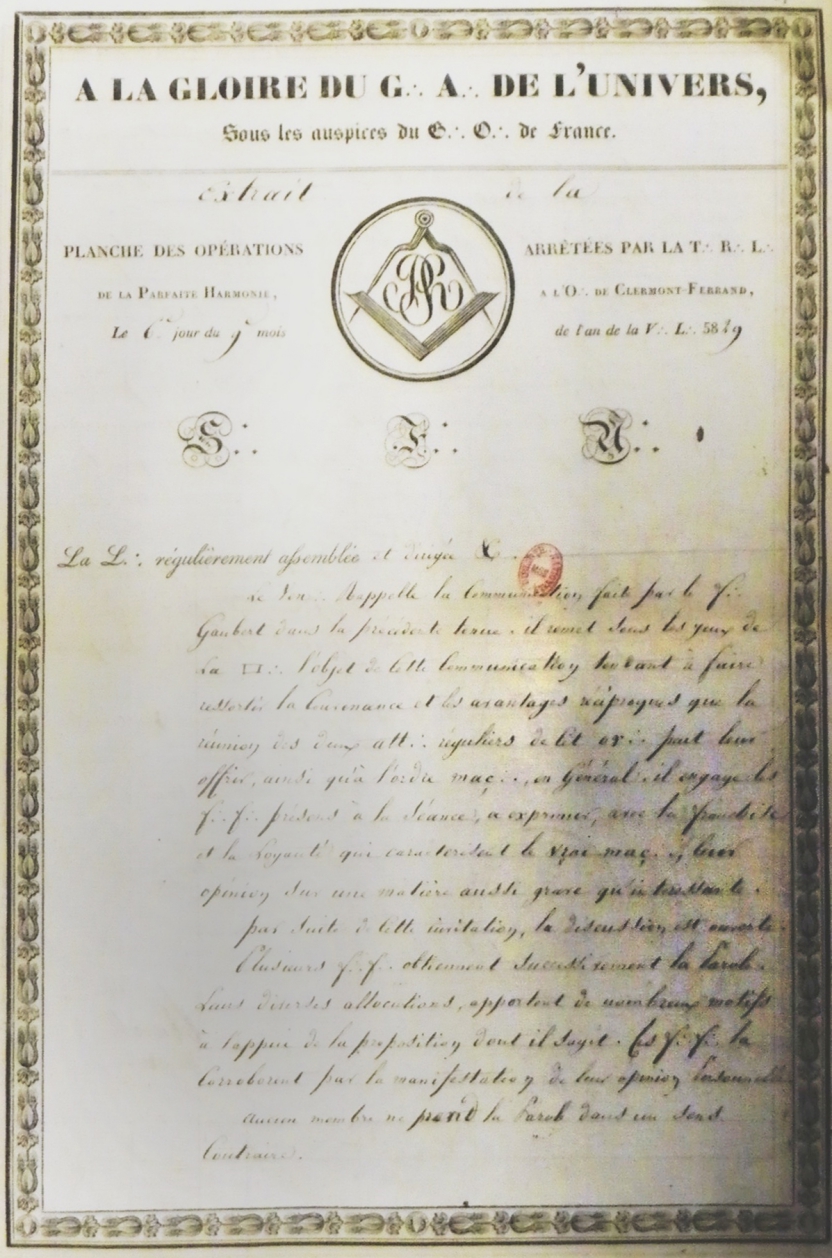 A LA GLOIRE DU G∴ A∴ DE L'UNIVERS,
Sous les auspices du G∴ O∴ de France.
extrait de la
PLANCHE DES OPÉRATIONS ARRÊTÉES PAR LA T∴ R∴ L∴
DE LA PARFAITE HARMONIE, A L'O∴ DE CLERMONT-FERRAND,
Le 6e jour du 9e mois de l'an de la V∴ L∴ 5829
S∴ F∴ U∴
La L∴ régulièrement assemblée et dirigée &.
Le Ven∴ Rappelle la Communication faite par le f∴
Gaubert dans la précédente tenue. il remet sous les yeux de
La □∴ l'objet de cette Communication tendant à faire
ressortir la Convenance et les avantages réciproques que la
réunion des deux att∴ réguliers de cet or∴ peut leur
offrir, ainsi qu'à l'ordre maç∴, en Général. il engage les
f∴ f∴ présens à la séance, a exprimer, avec la franchise
et la Loyauté qui caracterisent le vrai maç∴, leur
opinion sur une matière aussi grave qu'intéressante.
par suite de cette invitation, la discussion est ouverte.
Plusieurs f∴ f∴ obtiennent successivement la Parole.
Leurs diverses allocutions, apportent de nombreux motifs
à l'appui de la proposition dont il sagit. Ces f∴ f∴ la
Corroborent par la manifestation de leur opinion Personnelle
aucun membre ne prend la Parole dans un sens
Contraire.